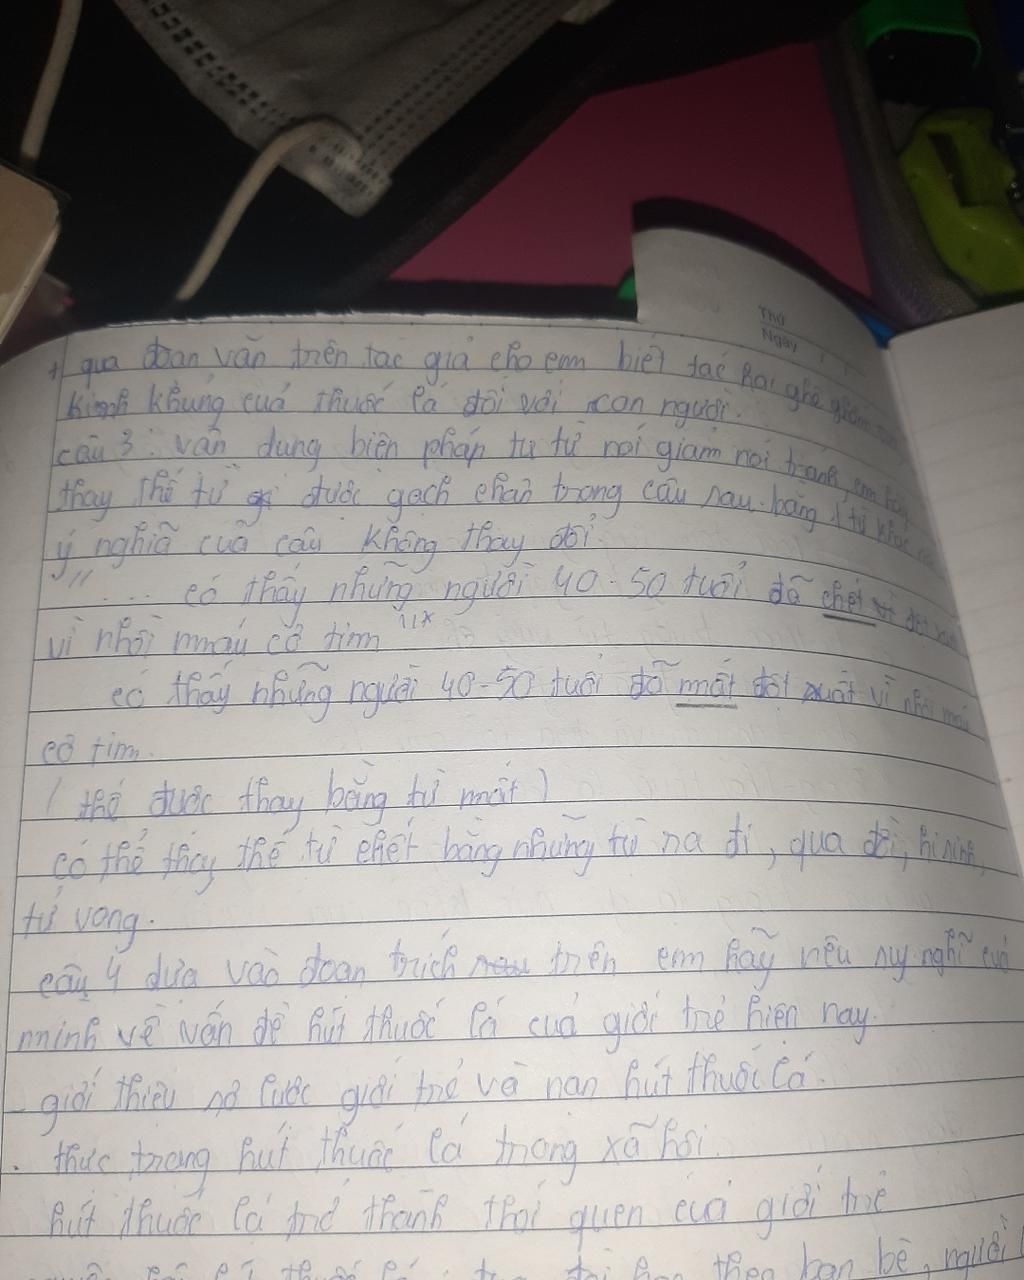 Thứ
Ngày
+ qua đoạn văn trên tác giả cho em biết tác hại ghê gớm,
kinh khủng của thuốc lá đối với con người.
câu 3: vận dụng biện pháp tu từ nói giảm nói tránh, em hãy
thay thế từ được gạch chân trong câu sau bằng 1 từ khác
ý nghĩa của câu không thay đổi
"... có thấy những người 40-50 tuổi đã chết đột
vì nhồi máu cơ tim"
có thấy những người 40-50 tuổi đã mất đột xuất vì nhồi máu
cơ tim.
( thế được thay bằng từ mất )
có thể thay thế từ chết bằng những từ ra đi, qua đời, hi sinh,
tử vong.
câu 4 dựa vào đoạn trích trên em hãy nêu suy nghĩ của
mình về vấn đề hút thuốc lá của giới trẻ hiện nay.
- giới thiệu sơ lược giới trẻ và nạn hút thuốc lá.
. thực trạng hút thuốc lá trong xã hội.
hút thuốc lá trở thành thói quen của giới trẻ
thuốc theo bạn bè, người